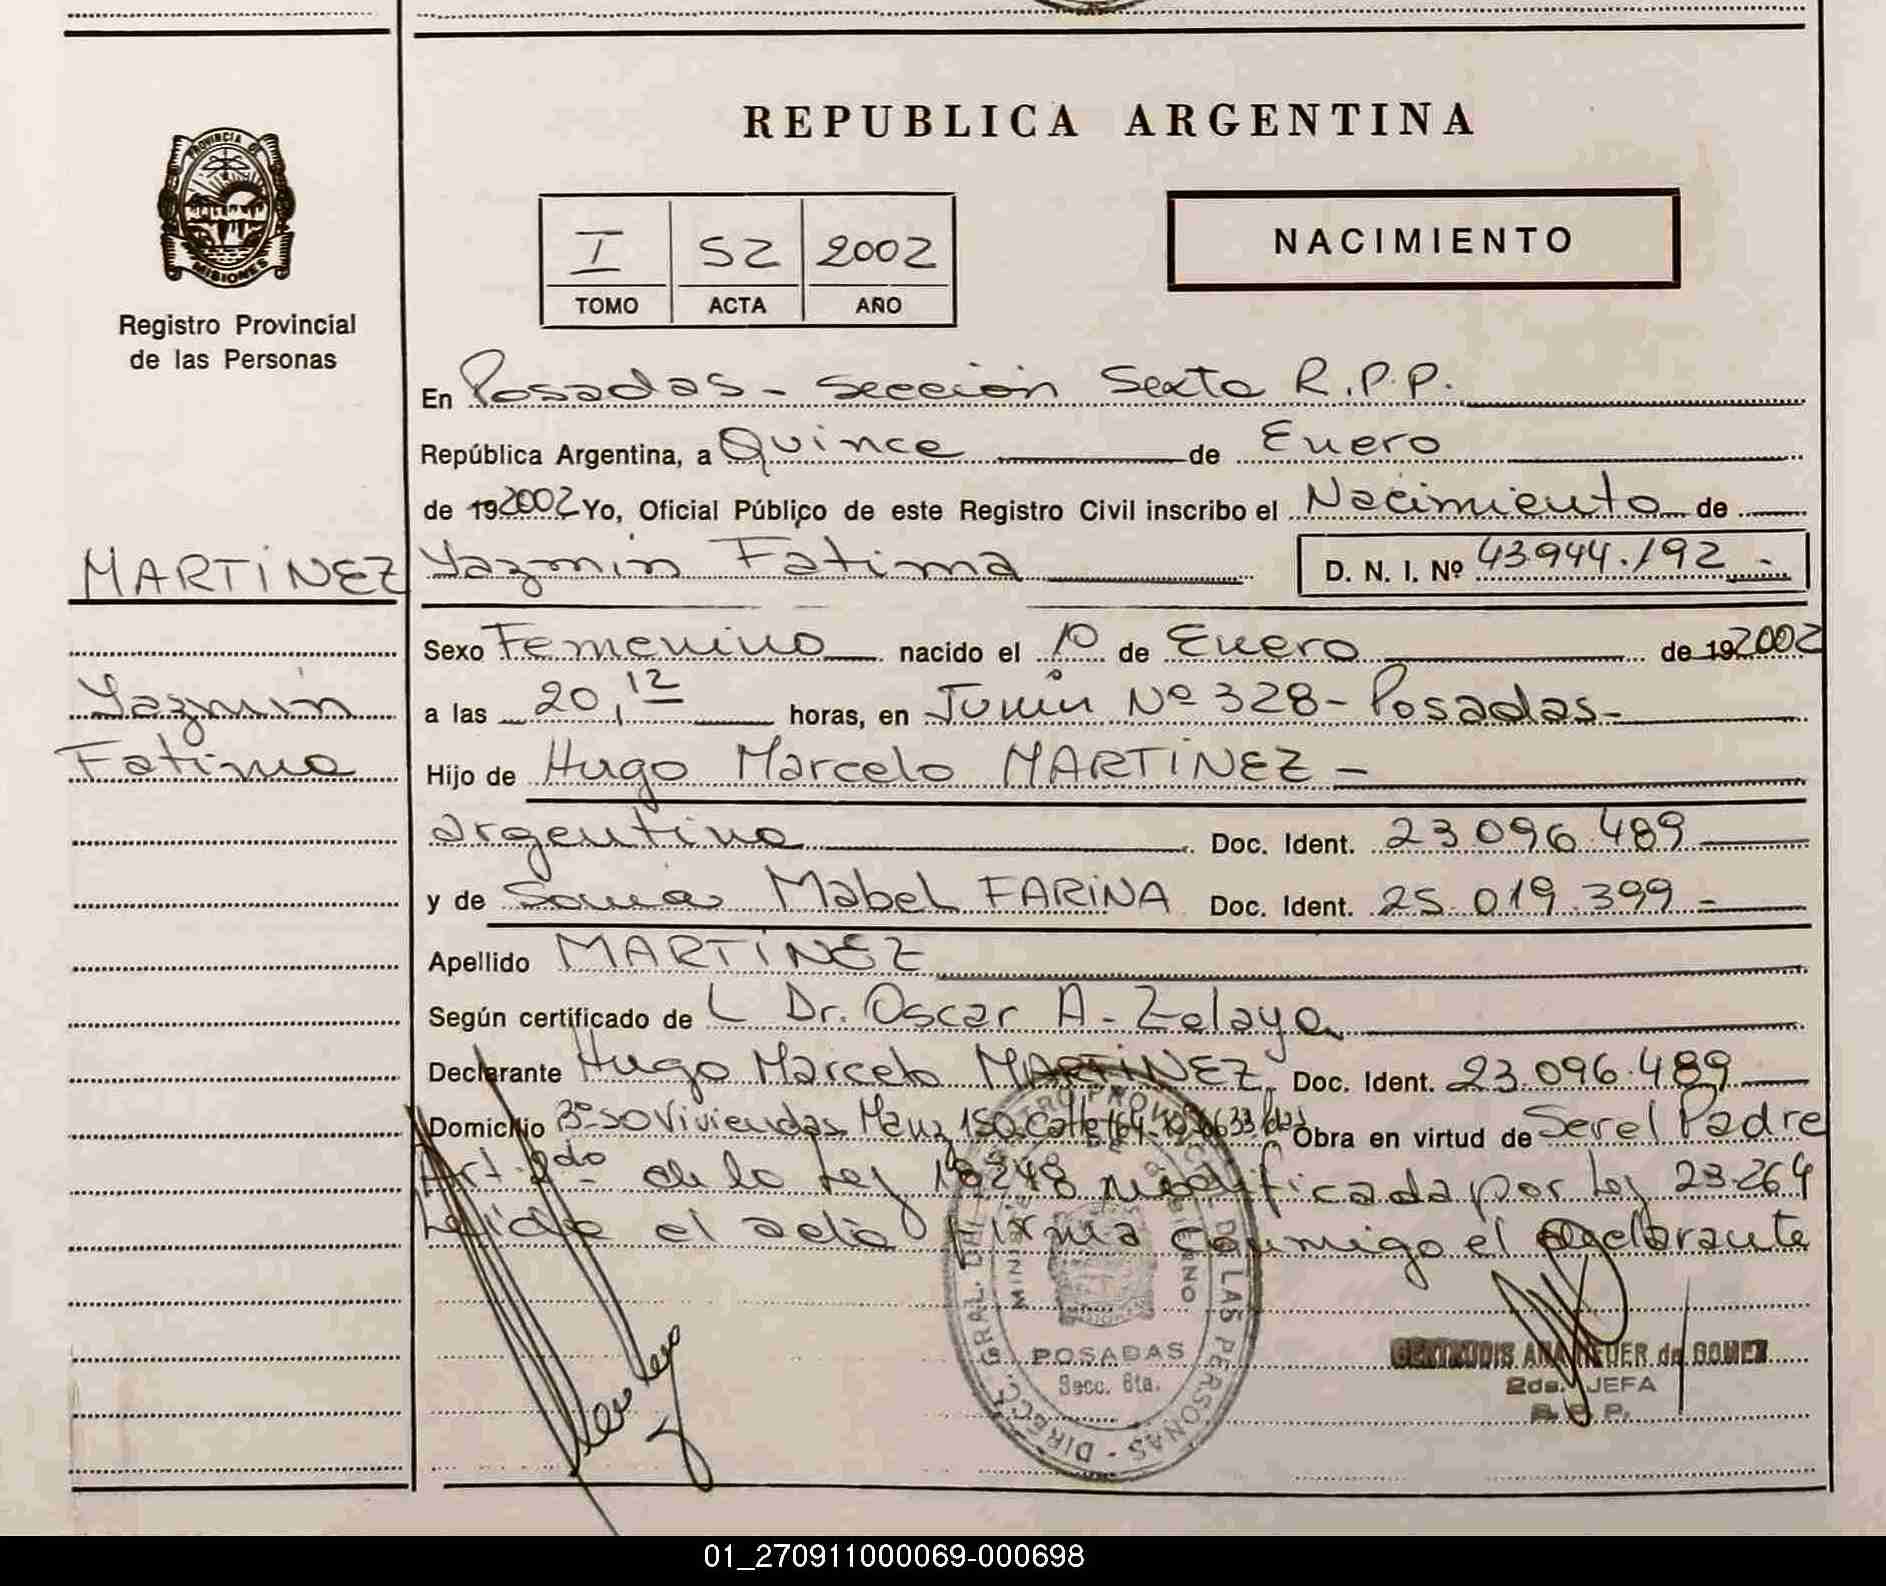 REPUBLICA ARGENTINA
PROVINCIA DE
MISIONES
Registro Provincial
de las Personas
I 52 2002
TOMO ACTA AÑO
NACIMIENTO
En Posadas - Sección Sexta R.P.P.
República Argentina, a Quince de Enero
de 19 2002 Yo, Oficial Público de este Registro Civil inscribo el Nacimiento de
MARTINEZ
Yazmin Fatima D. N. I. Nº 43.944.192 -
Sexo Femenino nacido el 1º de Enero de 19 2002
Yazmin
Fatima
a las 20,12 horas, en Junin Nº 328 - Posadas -
Hijo de Hugo Marcelo MARTINEZ -
argentino Doc. Ident. 23.096.489
y de Sonia Mabel FARINA Doc. Ident. 25.019.399 -
Apellido MARTINEZ
Según certificado de L Dr. Oscar A. Zelaya
Declarante Hugo Marcelo MARTINEZ Doc. Ident. 23.096.489
Domicilio 3º 50 Viviendas Manz 150 Calle Obra en virtud de Ser el Padre
Art. 2do de la Ley 18248 modificada por Ley 23.264
Leida el acta firma conmigo el declarante
DIRECC. GRAL. DEL REGISTRO PROVINCIAL DE LAS PERSONAS
MINISTERIO DE GOBIERNO
POSADAS
Secc. 6ta.
GERTRUDIS ANA de GOMEZ
2da. JEFA
R. P. P.
01_270911000069-000698